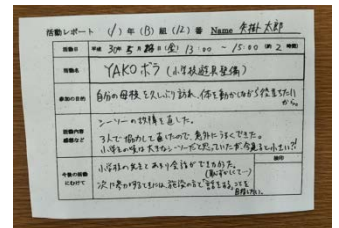 活動レポート (1) 年 (B) 組 (12) 番 Name 矢掛 太郎
活動日 平成 30年 5月 22日(金) 13:00 ~ 15:00 (約 2 時間)
活動名 YAKOボラ (小学校遊具整備)
参加の目的 自分の母校を久しぶり訪れ、体を動かしながら役立ちたい
から。
活動内容 シーソーの故障を直した。
感想など 3人で協力して直したので、意外にうまくできた。
小学生の頃は大きなシーソーだと思っていたが、今見ると小さい?!
今後の活動 小学校の先生とあまり会話ができなかった。
にむけて (恥ずかしくて…)
次に参加するときには、施設の方と会話をすることを
目指したい。
検印